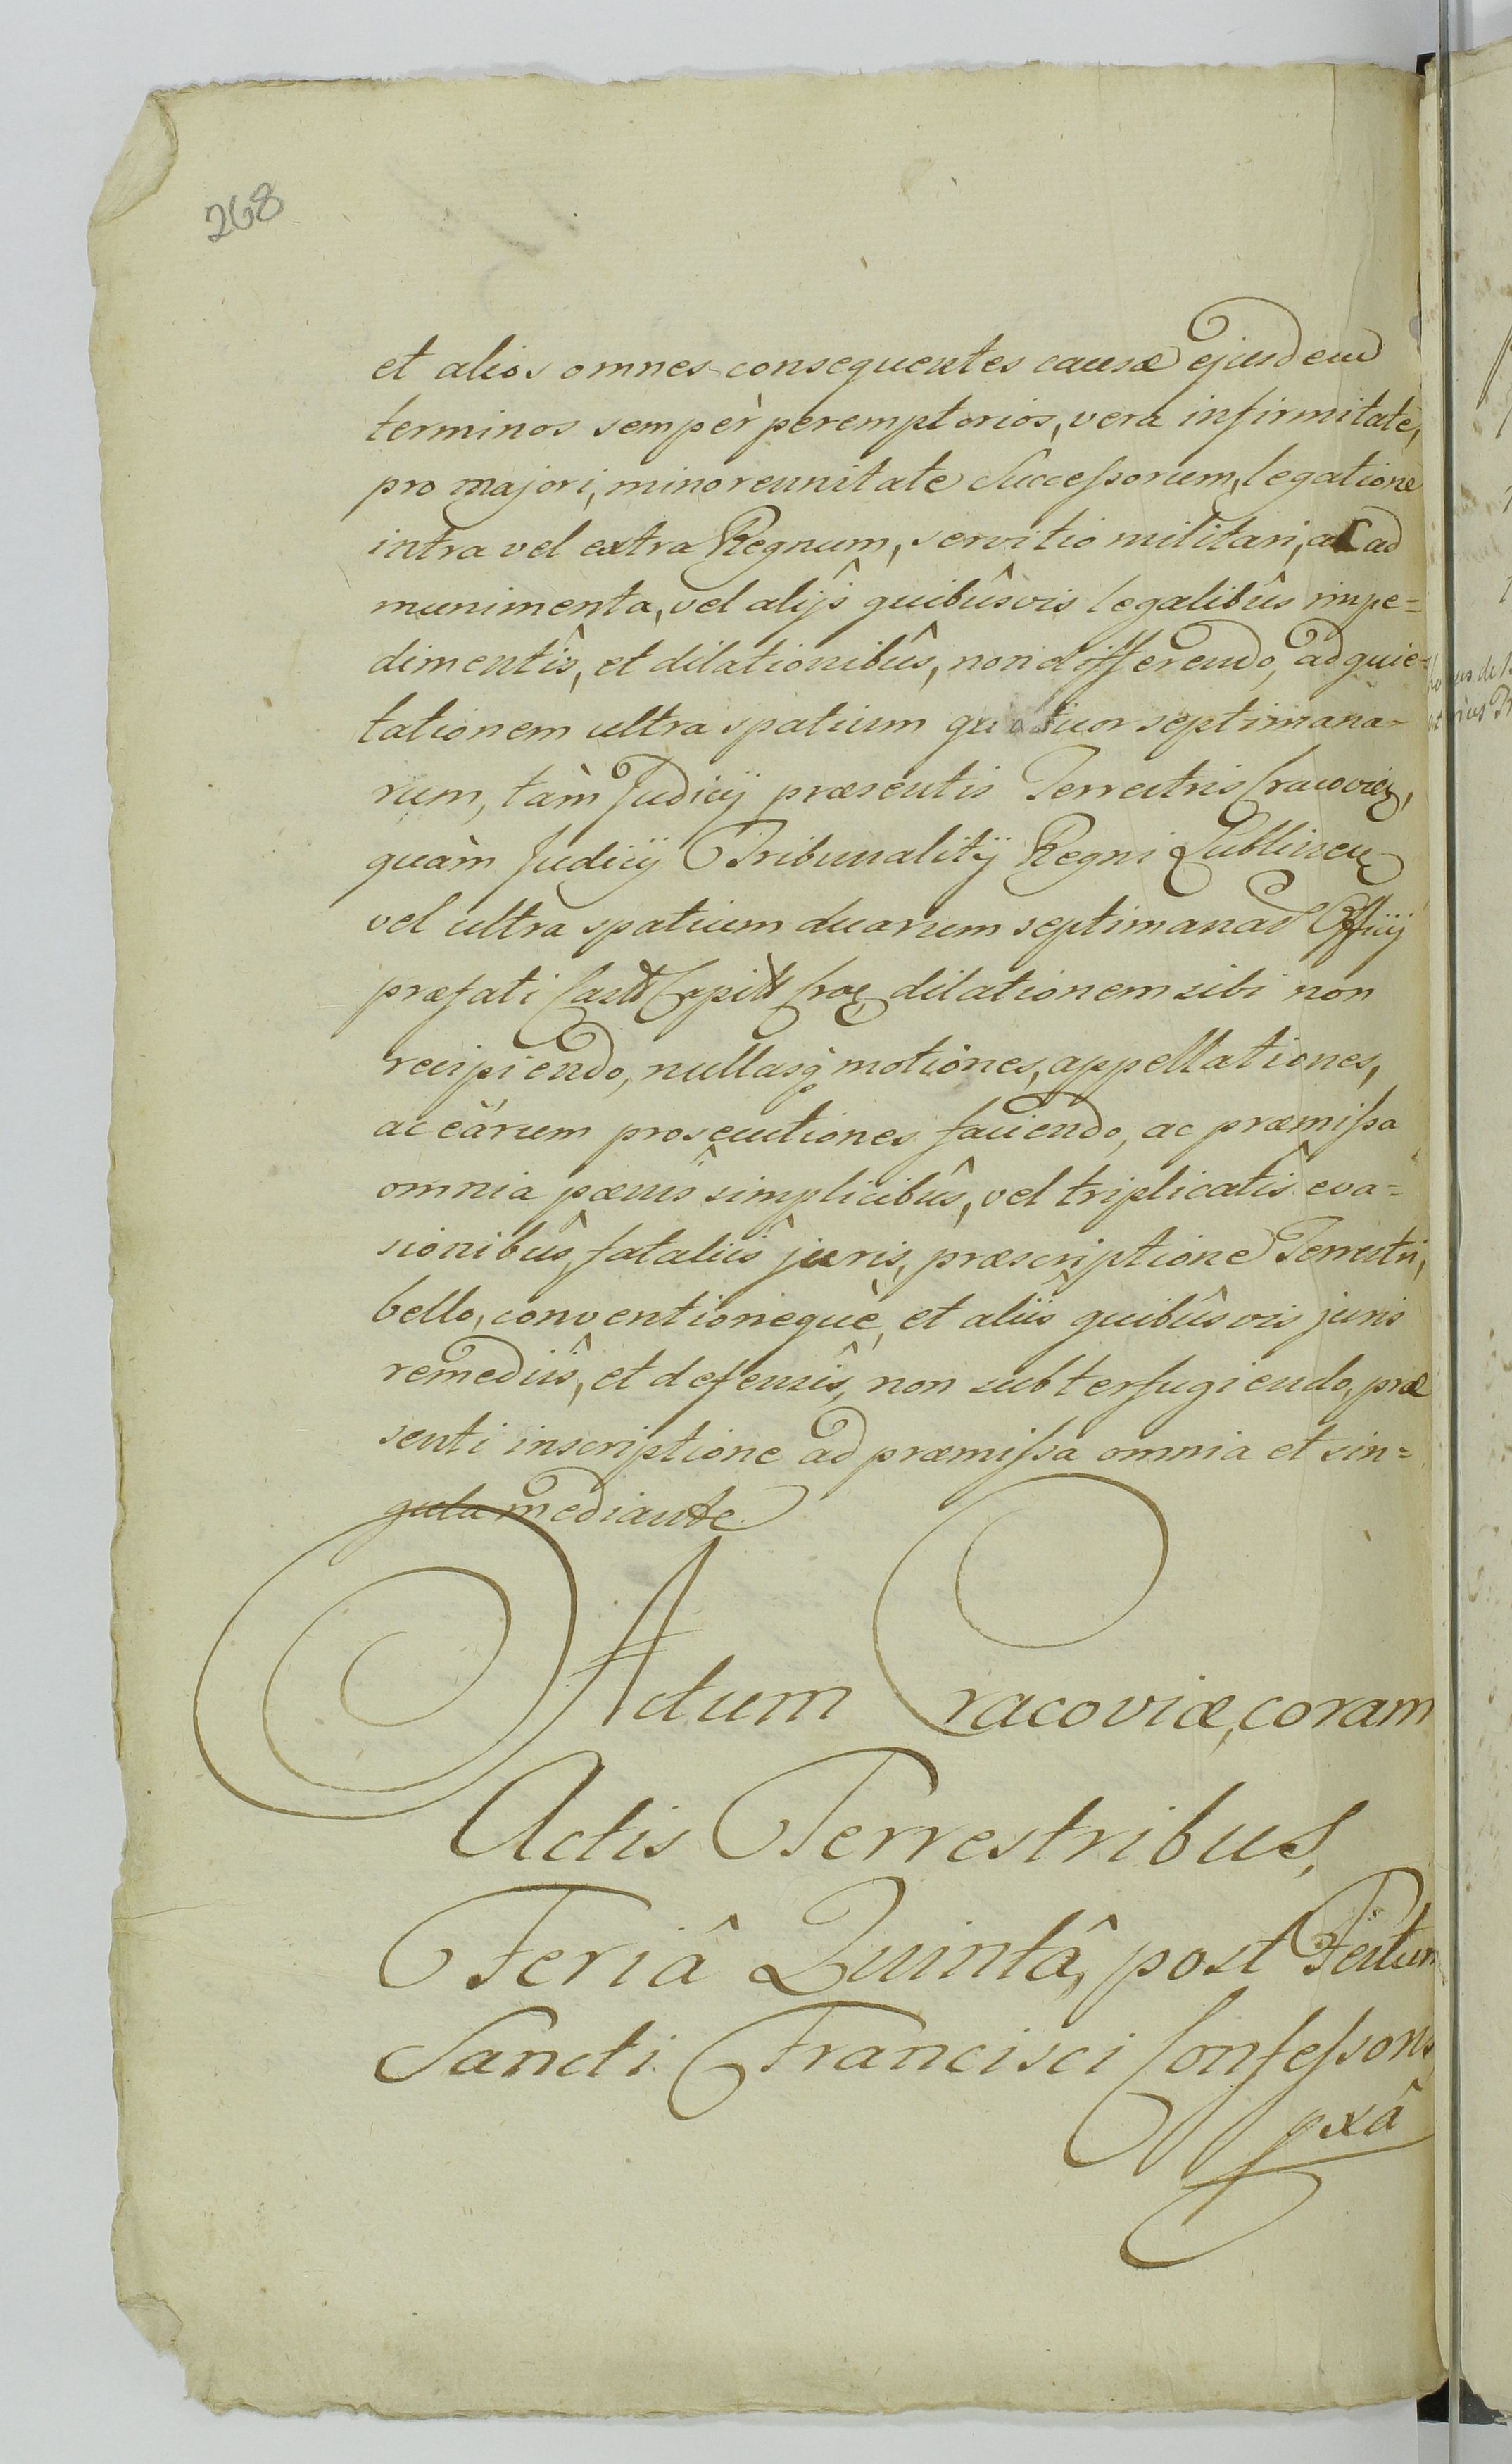 268
et alios omnes consequentes causæ ejusdem
terminos sempèr peremptorios, vera infirmitate,
pro majori, minorennitate Successorum, legatione
intra vel extra Regnum, servitio militari, ac ad
munimenta, vel alijs quibûsvis legalibûs impe=
dimentîs, et dilationibûs, non differendo, ad quie=
tationem ultra spatium quatuor septimana=
rum, tàm Judicij præsentis Terrestris Cracovien,
quàm Judicij Tribunalitij Regni Lublinen
vel ultra spatium duarum septimanar Officij
præfati Castr Capitt Crac dilationem sibi non
recipiendo, nullasq motiones, appellationes,
ac eàrum prosecutiones faciendo, ac præmissa
omnia pœnis simplicibûs, vel triplicatîs eva=
sionibûs, fataliis juris, præscriptione Terrestri,
bello, conventionequè, et aliis quibûsvis juris
remediîs, et defensîs, non subterfugiendo, præ
senti inscriptione ad præmissa omnia et sin=
gula mediante
Actum Cracoviæ, coram
Actis Terrestribus,
Feriâ Quintâ, post Festum
Sancti Francisci Confessoris
pxâ